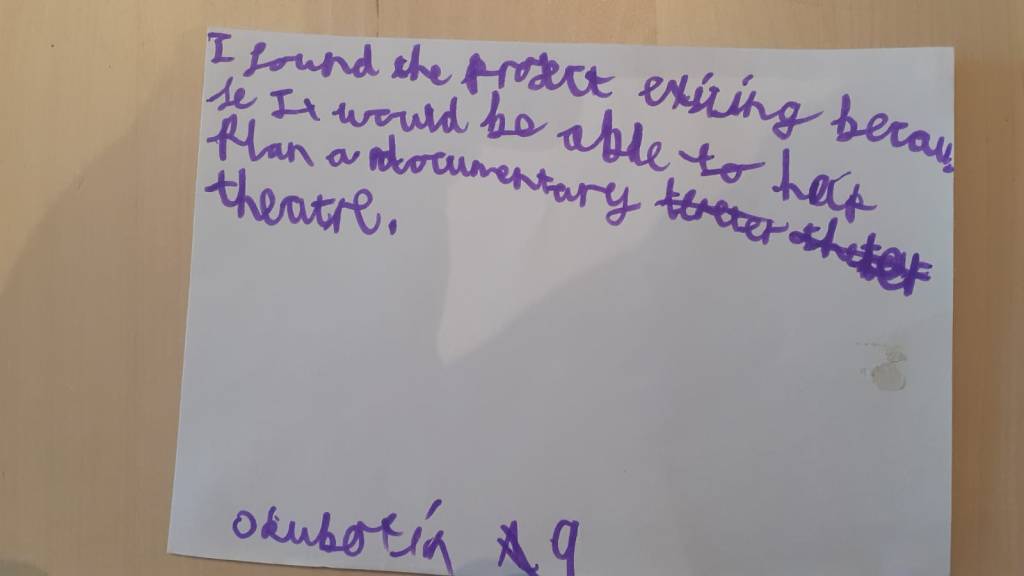 I found the project exsiting becau
se It would be able to help
Plan a documentary
theatre.
okubotin A 9